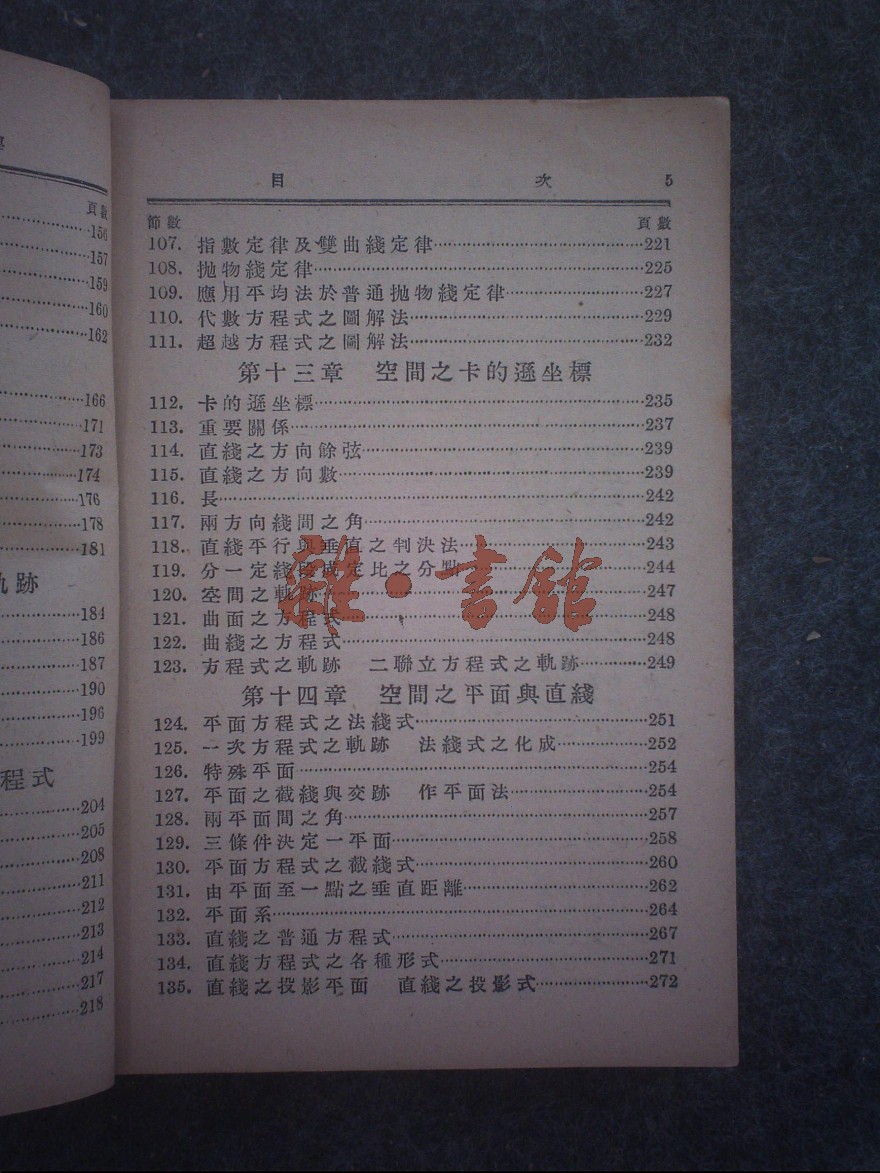 頁數
156
157
159
160
162
166
171
173
174
176
178
181
軌跡
184
186
187
190
196
199
程式
204
205
208
211
212
213
214
217
218
目 次 5
節數 頁數
107. 指數定律及雙曲綫定律 221
108. 拋物綫定律 225
109. 應用平均法於普通拋物綫定律 227
110. 代數方程式之圖解法 229
111. 超越方程式之圖解法 232
第十三章 空間之卡的遜坐標
112. 卡的遜坐標 235
113. 重要關係 237
114. 直綫之方向餘弦 239
115. 直綫之方向數 239
116. 長 242
117. 兩方向綫間之角 242
118. 直綫平行與垂直之判決法 243
119. 分一定綫段成定比之分點 244
120. 空間之軌跡 247
121. 曲面之方程式 248
122. 曲綫之方程式 248
123. 方程式之軌跡 二聯立方程式之軌跡 249
第十四章 空間之平面與直綫
124. 平面方程式之法綫式 251
125. 一次方程式之軌跡 法綫式之化成 252
126. 特殊平面 254
127. 平面之截綫與交跡 作平面法 254
128. 兩平面間之角 257
129. 三條件決定一平面 258
130. 平面方程式之截綫式 260
131. 由平面至一點之垂直距離 262
132. 平面系 264
133. 直綫之普通方程式 267
134. 直綫方程式之各種形式 271
135. 直綫之投影平面 直綫之投影式 272
雜·書館